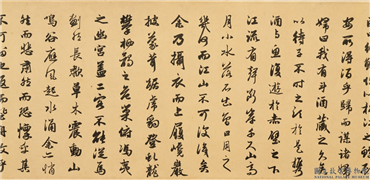 安所得酒乎歸而謀諸
婦婦曰我有斗酒藏之久矣
以待子不時之須於是攜
酒與魚復遊於赤壁之下
江流有聲斷岸千尺山高
月小水落石出曾日月之
幾何而江山不可復識矣
余乃攝衣而上履巉巖
披蒙茸踞虎豹登虬龍
攀栖鶻之危巢俯馮夷
之幽宮蓋二客不能從焉
劃然長嘯草木震動山
鳴谷應風起水涌余亦悄
然而悲肅然而恐凜乎其
不可留也反而登舟放乎
NATIONAL PALACE MUSEUM